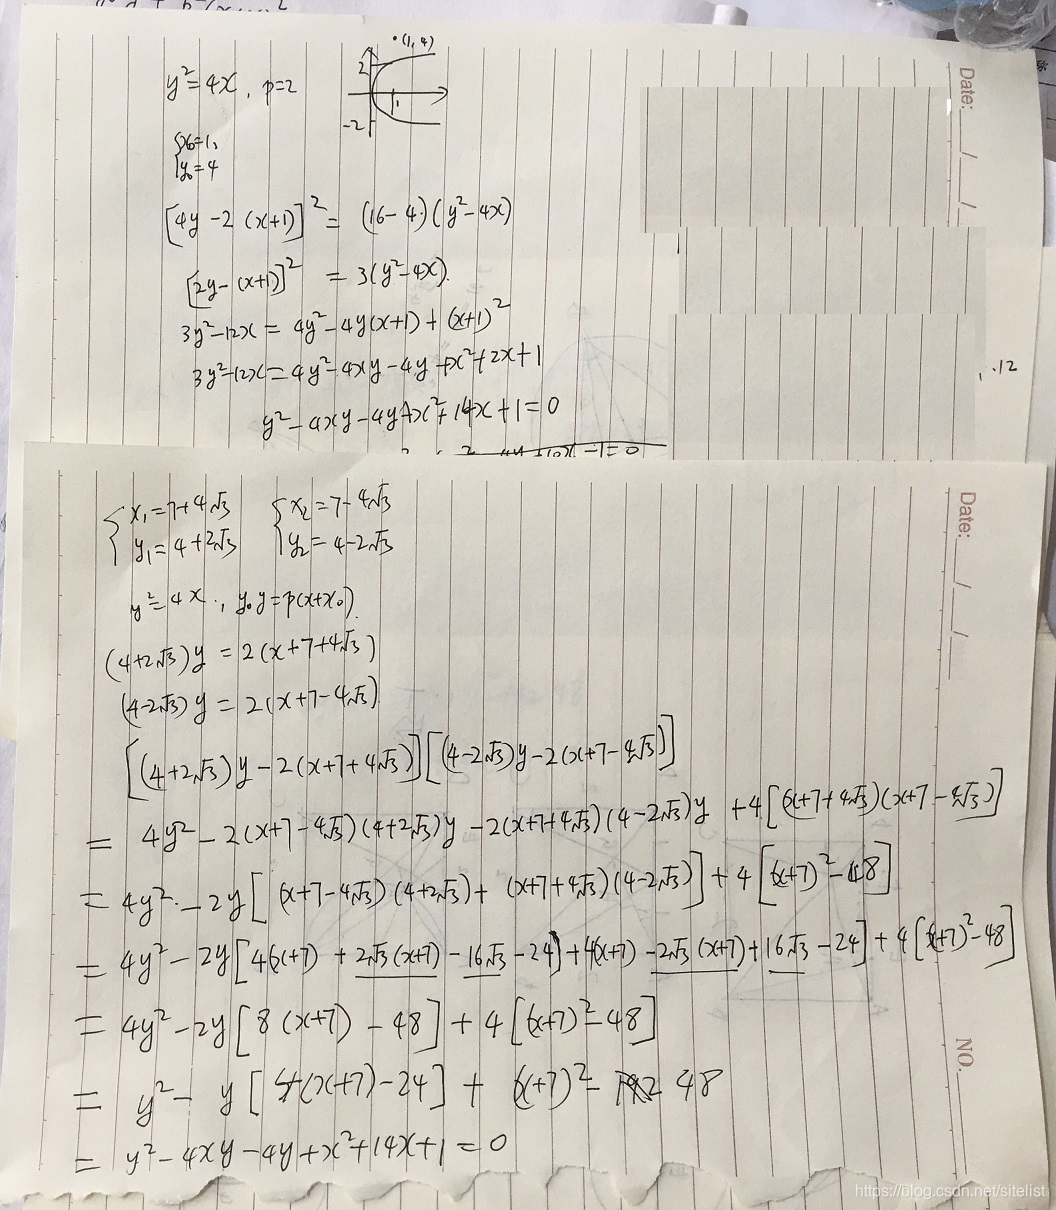 y²=4x, p=2
•(1,4)
2
1
-2
{x₀=1,
y₀=4
[4y-2(x+1)]²=(16-4)(y²-4x)
[2y-(x+1)]²=3(y²-4x).
3y²-12x=4y²-4y(x+1)+(x+1)²
3y²-12x=4y²-4xy-4y+x²+2x+1
y²-4xy-4y+x²+14x+1=0
Date: / /
.12
{x₁=7+4√3
y₁=4+2√3
{x₂=7-4√3
y₂=4-2√3
y²=4x., y₀y=p(x+x₀).
(4+2√3)y=2(x+7+4√3)
(4-2√3)y=2(x+7-4√3).
[(4+2√3)y-2(x+7+4√3)][(4-2√3)y-2(x+7-4√3)]
= 4y²-2(x+7-4√3)(4+2√3)y-2(x+7+4√3)(4-2√3)y+4[(x+7+4√3)(x+7-4√3)]
= 4y²-2y[(x+7-4√3)(4+2√3)+(x+7+4√3)(4-2√3)]+4[(x+7)²-48]
= 4y²-2y[4(x+7)+2√3(x+7)-16√3-24]+4(x+7)-2√3(x+7)+16√3-24]+4[(x+7)²-48]
= 4y²-2y[8(x+7)-48]+4[(x+7)²-48]
= y²-y[4(x+7)-24]+(x+7)²-48
= y²-4xy-4y+x²+14x+1=0
Date: / /
NO.
https://blog.csdn.net/sitelist